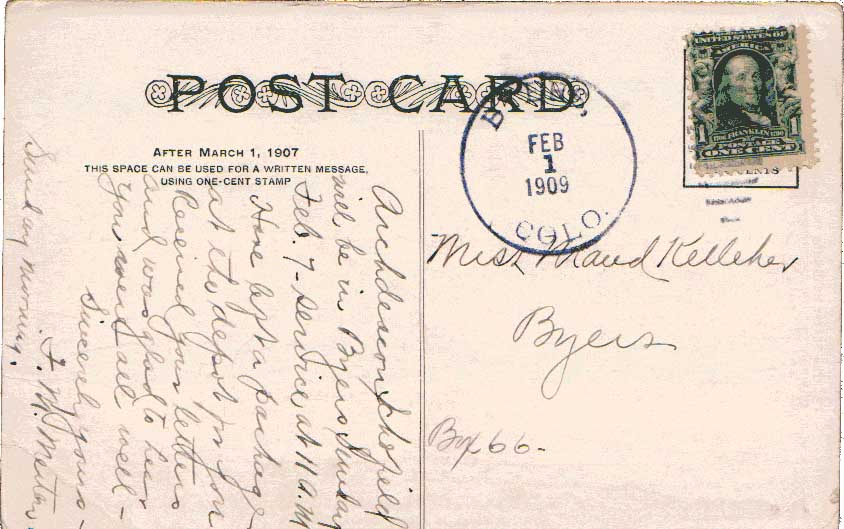 POST CARD
AFTER MARCH 1, 1907
THIS SPACE CAN BE USED FOR A WRITTEN MESSAGE,
USING ONE-CENT STAMP
Archdeacon Schofield
will be in Byers Sunday
Feb. 7 - service at 11 A.M
Have left a package
at the depot for you
Received your letters
and was glad to hear
you were all well -
Sincerely yours -
Sunday Morning.
COLO.
FEB
1
1909
UNITED STATES OF
AMERICA
FRANKLIN
POSTAGE
1 ONE CENT 1
Miss Maud Kelleher
Byers
Box 66-